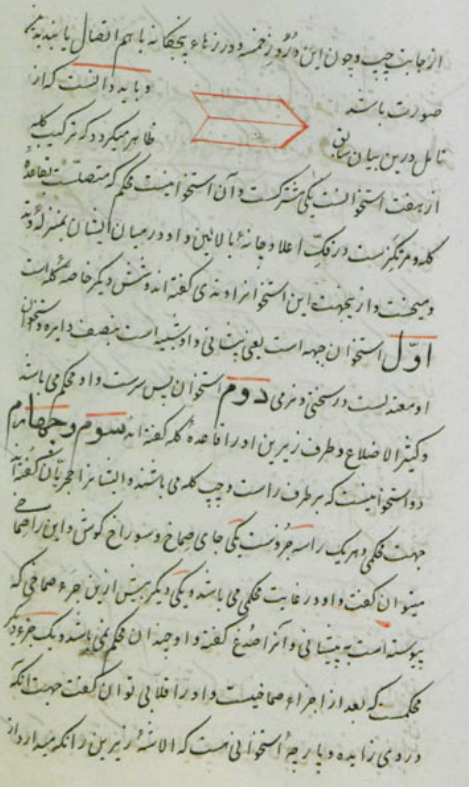 از جانب چپ و چون این دو روز خمسه و درزهاء پنجگانه باهم اتصال یابند بدین
صورت باشد و باید دانست که از
تامل درین بیان سابق ظاهر میگردد که ترکیب کله
از هفت استخوانست یکی مشترکست و آن استخوانیست محکم که متصلست بقاعدهٔ
کله و مرتکزست در فکّ اعلا و چانهٔ بالائین و او در میان ایشان بمنزلهٔ وتد
و میخست و از ینجهت این استخوانرا وتدی گفته‌اند و شش دیگر خاصهٔ کله است
اوّل استخوان جبهه است یعنی پیشانی و او شبیه است بنصف دایره و استخوان
او معتدلست در سختی و نرمی دوم استخوان پس سرست و او محکم می باشد
و کثیر الاضلاع و طرف زیرین او را قاعدهٔ کله گفته‌اند سوم و چهارم
دو استخوانیست که بر طرف راست و چپ کله می باشند و ایشانرا حجریّان گفته‌اند
جهت محکمی و هر یک را سه جزوست یکی جای صماخ و سوراخ گوش و این را صماخی
میتوان گفت و او در غایت محکمی می باشد و یکی دیگر پیش ازین جزء صماخی که
پیوسته است به پیشانی و آنرا صدغ گفته و او چندان محکم نمی باشد و یک جزء دیگر
محکمست که بعد از اجزاء صماخیست و او را توان گفت جهت آنکه
در وی زایده و پارچهٔ استخوانی هست که لاشهٔ زیرین را نگه میدارد از